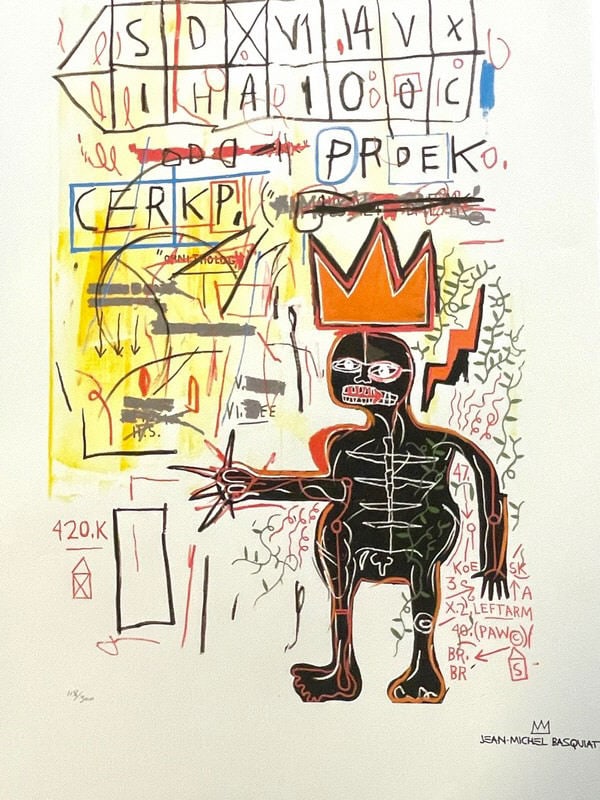 S D X V1 .14 V X
I H A 1 0 0 C
PRDEK
CERKP.
"ORNITHOLOGY"
V.
VI. EE
H.S.
420.K
47.
KOE SK
3 C A
X.2, LEFTARM
40. (PAW©)(
BR.
BR S
118/300
JEAN-MICHEL BASQUIAT